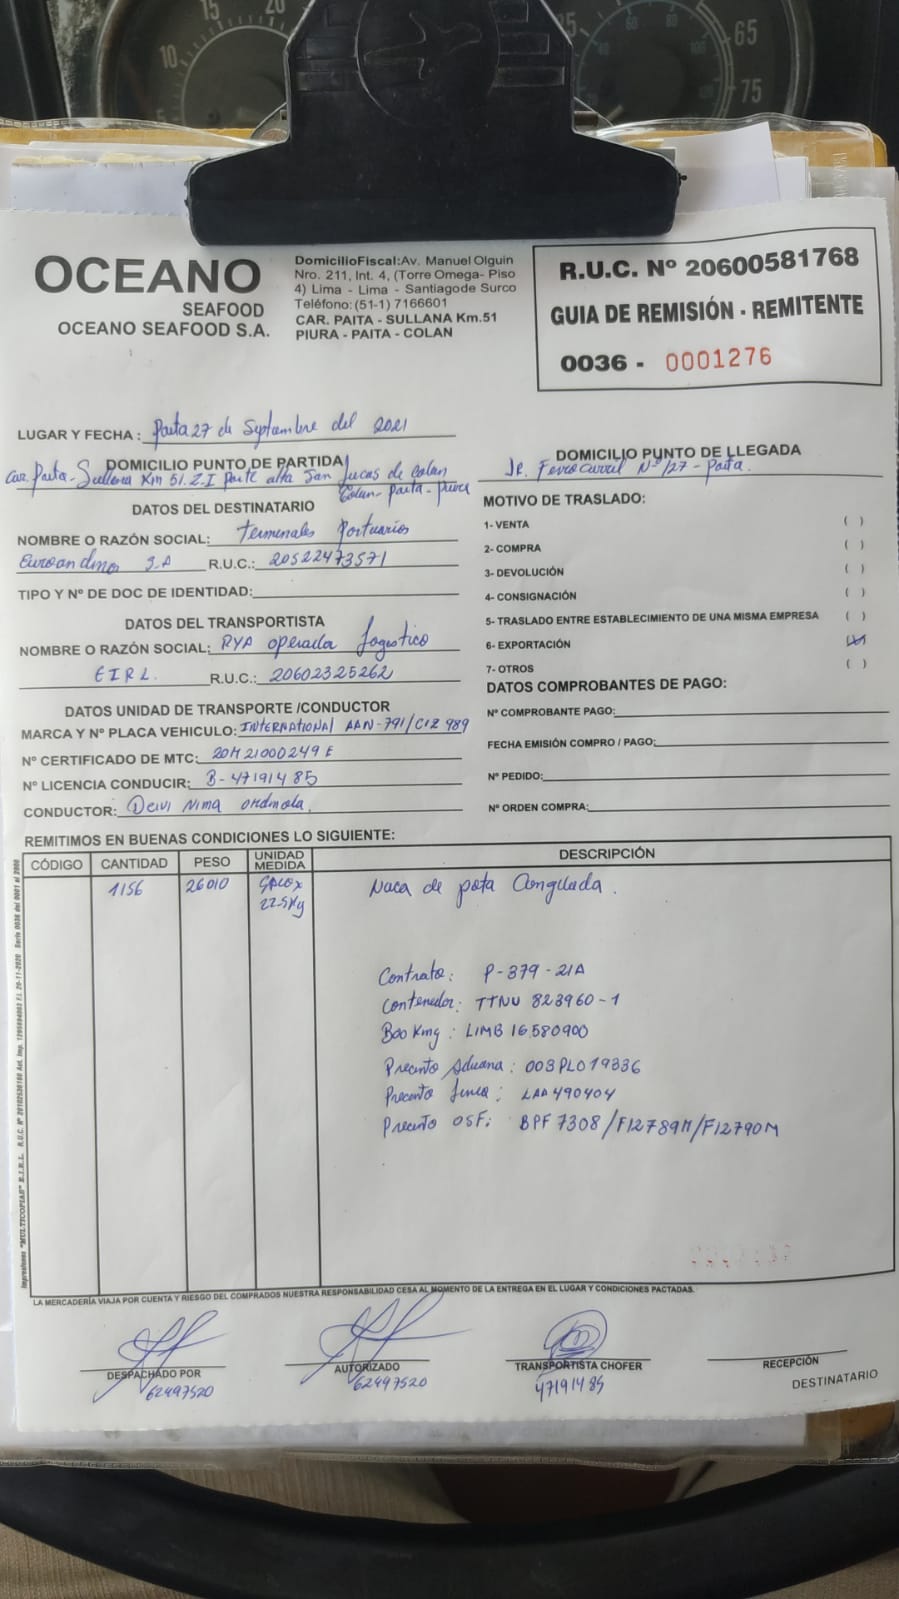 OCEANO
SEAFOOD
OCEANO SEAFOOD S.A.
DomicilioFiscal:Av. Manuel Olguin
Nro. 211, Int. 4, (Torre Omega- Piso
4) Lima - Lima - Santiagode Surco
Teléfono: (51-1) 7166601
CAR. PAITA - SULLANA Km.51
PIURA - PAITA - COLAN
R.U.C. Nº 20600581768
GUIA DE REMISIÓN - REMITENTE
0036 - 0001276
LUGAR Y FECHA : Paita 27 de Septiembre del 2021
DOMICILIO PUNTO DE PARTIDA
Car. Paita - Sullana Km 51. Z.I parte alta San Lucas de Colan
Colan - Paita - Piura
DOMICILIO PUNTO DE LLEGADA
JR. Ferrocarril Nº 127 - Paita.
DATOS DEL DESTINATARIO
NOMBRE O RAZÓN SOCIAL: Terminales Portuarios
Euroandinos S.A R.U.C.: 20522473571
TIPO Y Nº DE DOC DE IDENTIDAD:
DATOS DEL TRANSPORTISTA
NOMBRE O RAZÓN SOCIAL: RYA operador Logostico
EIRL. R.U.C.: 20602325262
DATOS UNIDAD DE TRANSPORTE /CONDUCTOR
MARCA Y Nº PLACA VEHICULO: INTERNATIONAL AAN-791/C1Z 989
Nº CERTIFICADO DE MTC: 20M21000249E
Nº LICENCIA CONDUCIR: B-47191485
CONDUCTOR: Deivi Nima Ordinola.
MOTIVO DE TRASLADO:
1- VENTA ( )
2- COMPRA ( )
3- DEVOLUCIÓN ( )
4- CONSIGNACIÓN ( )
5- TRASLADO ENTRE ESTABLECIMIENTO DE UNA MISMA EMPRESA ( )
6- EXPORTACIÓN (X)
7- OTROS ( )
DATOS COMPROBANTES DE PAGO:
Nº COMPROBANTE PAGO:
FECHA EMISIÓN COMPRO / PAGO:
Nº PEDIDO:
Nº ORDEN COMPRA:
REMITIMOS EN BUENAS CONDICIONES LO SIGUIENTE:
CÓDIGO CANTIDAD PESO UNIDAD MEDIDA DESCRIPCIÓN
1156 26010 SACO x Nuca de pota Congelada.
22.5Kg
Contrato: P-379-21A
Contenedor: TTNU 823960-1
Booking: LIMB16580900
Precinto Aduana: 003PL019336
Precinto linea: LAA490404
Precinto OSF: BPF7308/F12789M/F12790M
Impresiones "MULTICOPIAS" E.I.R.L. Serie 0036 del 0001 al 2000
LA MERCADERÍA VIAJA POR CUENTA Y RIESGO DEL COMPRADOS NUESTRA RESPONSABILIDAD CESA AL MOMENTO DE LA ENTREGA EN EL LUGAR Y CONDICIONES PACTADAS.
DESPACHADO POR
62497520
AUTORIZADO
62497520
TRANSPORTISTA CHOFER
47191485
RECEPCIÓN
DESTINATARIO
10
15
20
65
75